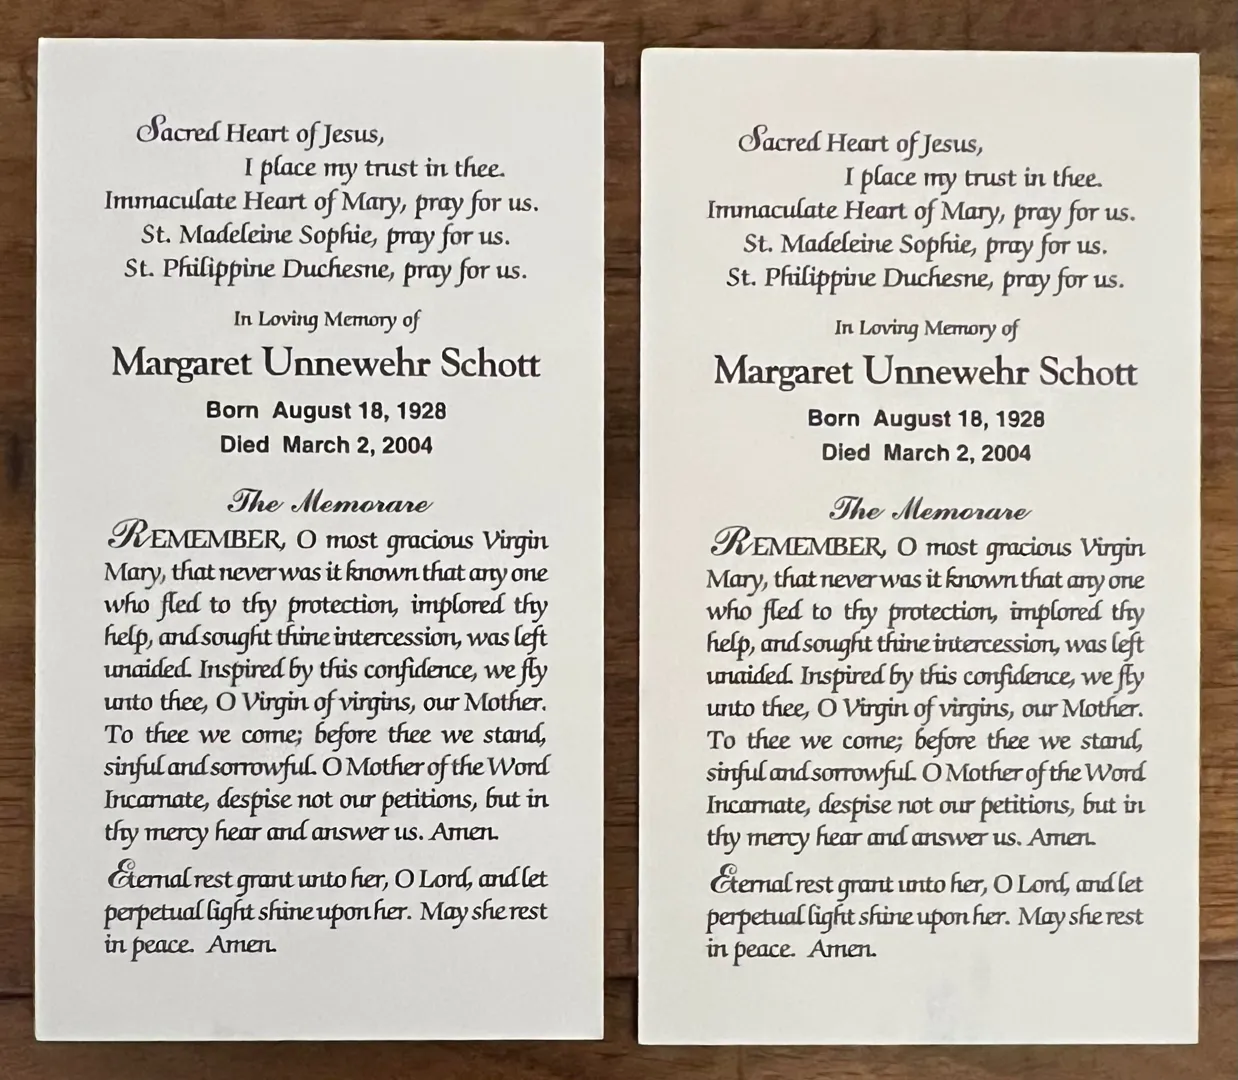 Sacred Heart of Jesus,
I place my trust in thee.
Immaculate Heart of Mary, pray for us.
St. Madeleine Sophie, pray for us.
St. Philippine Duchesne, pray for us.
In Loving Memory of
Margaret Unnewehr Schott
Born August 18, 1928
Died March 2, 2004
The Memorare
REMEMBER, O most gracious Virgin
Mary, that never was it known that any one
who fled to thy protection, implored thy
help, and sought thine intercession, was left
unaided. Inspired by this confidence, we fly
unto thee, O Virgin of virgins, our Mother.
To thee we come; before thee we stand,
sinful and sorrowful. O Mother of the Word
Incarnate, despise not our petitions, but in
thy mercy hear and answer us. Amen.
Eternal rest grant unto her, O Lord, and let
perpetual light shine upon her. May she rest
in peace. Amen.
Sacred Heart of Jesus,
I place my trust in thee.
Immaculate Heart of Mary, pray for us.
St. Madeleine Sophie, pray for us.
St. Philippine Duchesne, pray for us.
In Loving Memory of
Margaret Unnewehr Schott
Born August 18, 1928
Died March 2, 2004
The Memorare
REMEMBER, O most gracious Virgin
Mary, that never was it known that any one
who fled to thy protection, implored thy
help, and sought thine intercession, was left
unaided. Inspired by this confidence, we fly
unto thee, O Virgin of virgins, our Mother.
To thee we come; before thee we stand,
sinful and sorrowful. O Mother of the Word
Incarnate, despise not our petitions, but in
thy mercy hear and answer us. Amen.
Eternal rest grant unto her, O Lord, and let
perpetual light shine upon her. May she rest
in peace. Amen.